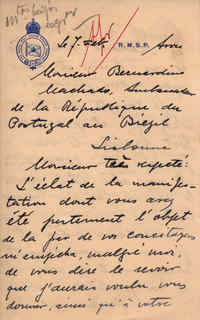 Le 7. Feb. R.M.S.P. Avon
Monsieur Bernardino
Machado, Ambassadeur
de la République du
Portugal au Brézil
Lisbonne
Monsieur très respecté:
L'éclat de la manifes-
tation dont vous avez
été justement l'objet
de la par de vos concitoyens
m'empêcha, malgré moi,
de vous dire le revoir
que j'aurais voulu vous
donner, ainsi qu'à votre